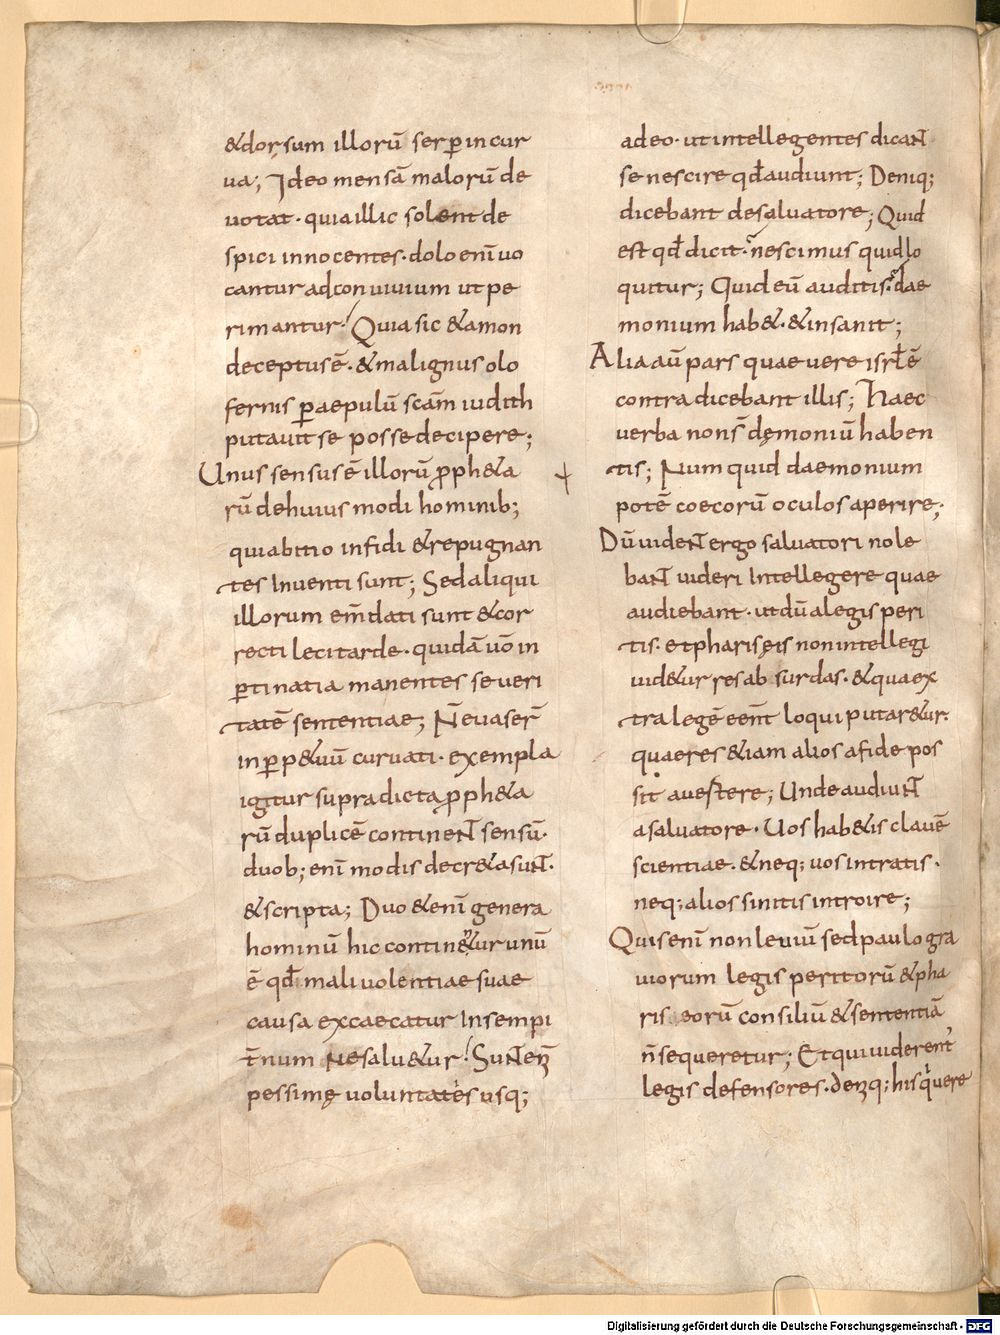 &dorsum illorū serꝑ incur
ua; Ideo mensā malorū de
uotat · quia illic solent de
spici innocentes · dolo enī uo
cantur ad conuiuium ut pe
rimantur! Quia sic & amon
deceptus ē · & malignus olo
fernis p̄aepulū sc̄am iudith
putauit se posse decipere;
Unus sensus ē illorū ꝓph&a
rū de huius modi hominib;
qui ab itio infidi & repugnan
tes Inuenti sunt; Sed aliqui
illorum em̄dati sunt & cor
recti leci tarde · quidā uō in
ꝑtinatia manentes se ueri
tatē sententiae; N̄ euaser̄
in ꝑp&uū curuati · exempla
igitur supra dicta ꝓph&a
rū duplicē continent sensū ·
duob; enī modis decr&a sunt ·
& scripta; Duo & enī genera
hominū hic contin&ur unū
ē qd̄ mali uolentiae suae
causa excaecatur In sempi
t̄num Ne salu&ur! Sunt enī
pessimę uoluntatis usq;
adeo · ut intellegentes dicant
se nescire qd̄ audiunt; Deniq;
dicebant de saluatore; Quid
est qd̄ dicit · nescimus quid lo
quitur; Quid eū auditis · dae
monium hab& · & insanit;
Alia aū pars quae uere isrl̄ ē
contradicebant illis; Haec
uerba non s̄ dęmoniū haben
tis; Num quid daemonium
potē coecorū oculos aperire;
Dū uident ergo saluatori nole
bant uideri Intellegere quae
audiebant · ut dū a legis peri
tis · et phariseis non intellegi
uid&ur res absurdas · & quae x
tra legē eēnt loqui putar&ur ·
quaeres & iam alios a fide pos
sit auertere; Unde audiunt
a saluatore · Uos hab&is clauē
scientiae · & neq; uos intratis ·
neq; alios sinitis introire;
Quis enī non leuiū sed paulo gra
uiorum legis peritorū & pha
riseorū consiliū & sententiā
n̄ sequeretur; Et qui uiderent
legis defensores